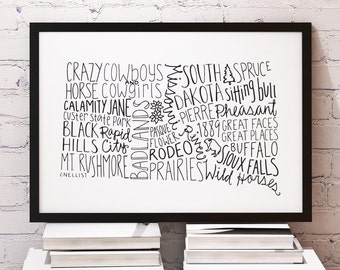 CRAZY
HORSE
COWBOYS
AND
COWGIRLS
CALAMITY JANE
Custer State Park
BLACK
HILLS
Rapid
City
MT RUSHMORE
BADLANDS
PASQUE
FLOWER
RODEO
PRAIRIES
Missouri
River
SOUTH
DAKOTA
SPRUCE
sitting bull
PIERRE
Pheasant
1889
GREAT FACES
GREAT PLACES
BUFFALO
SIOUX FALLS
Wild Horses